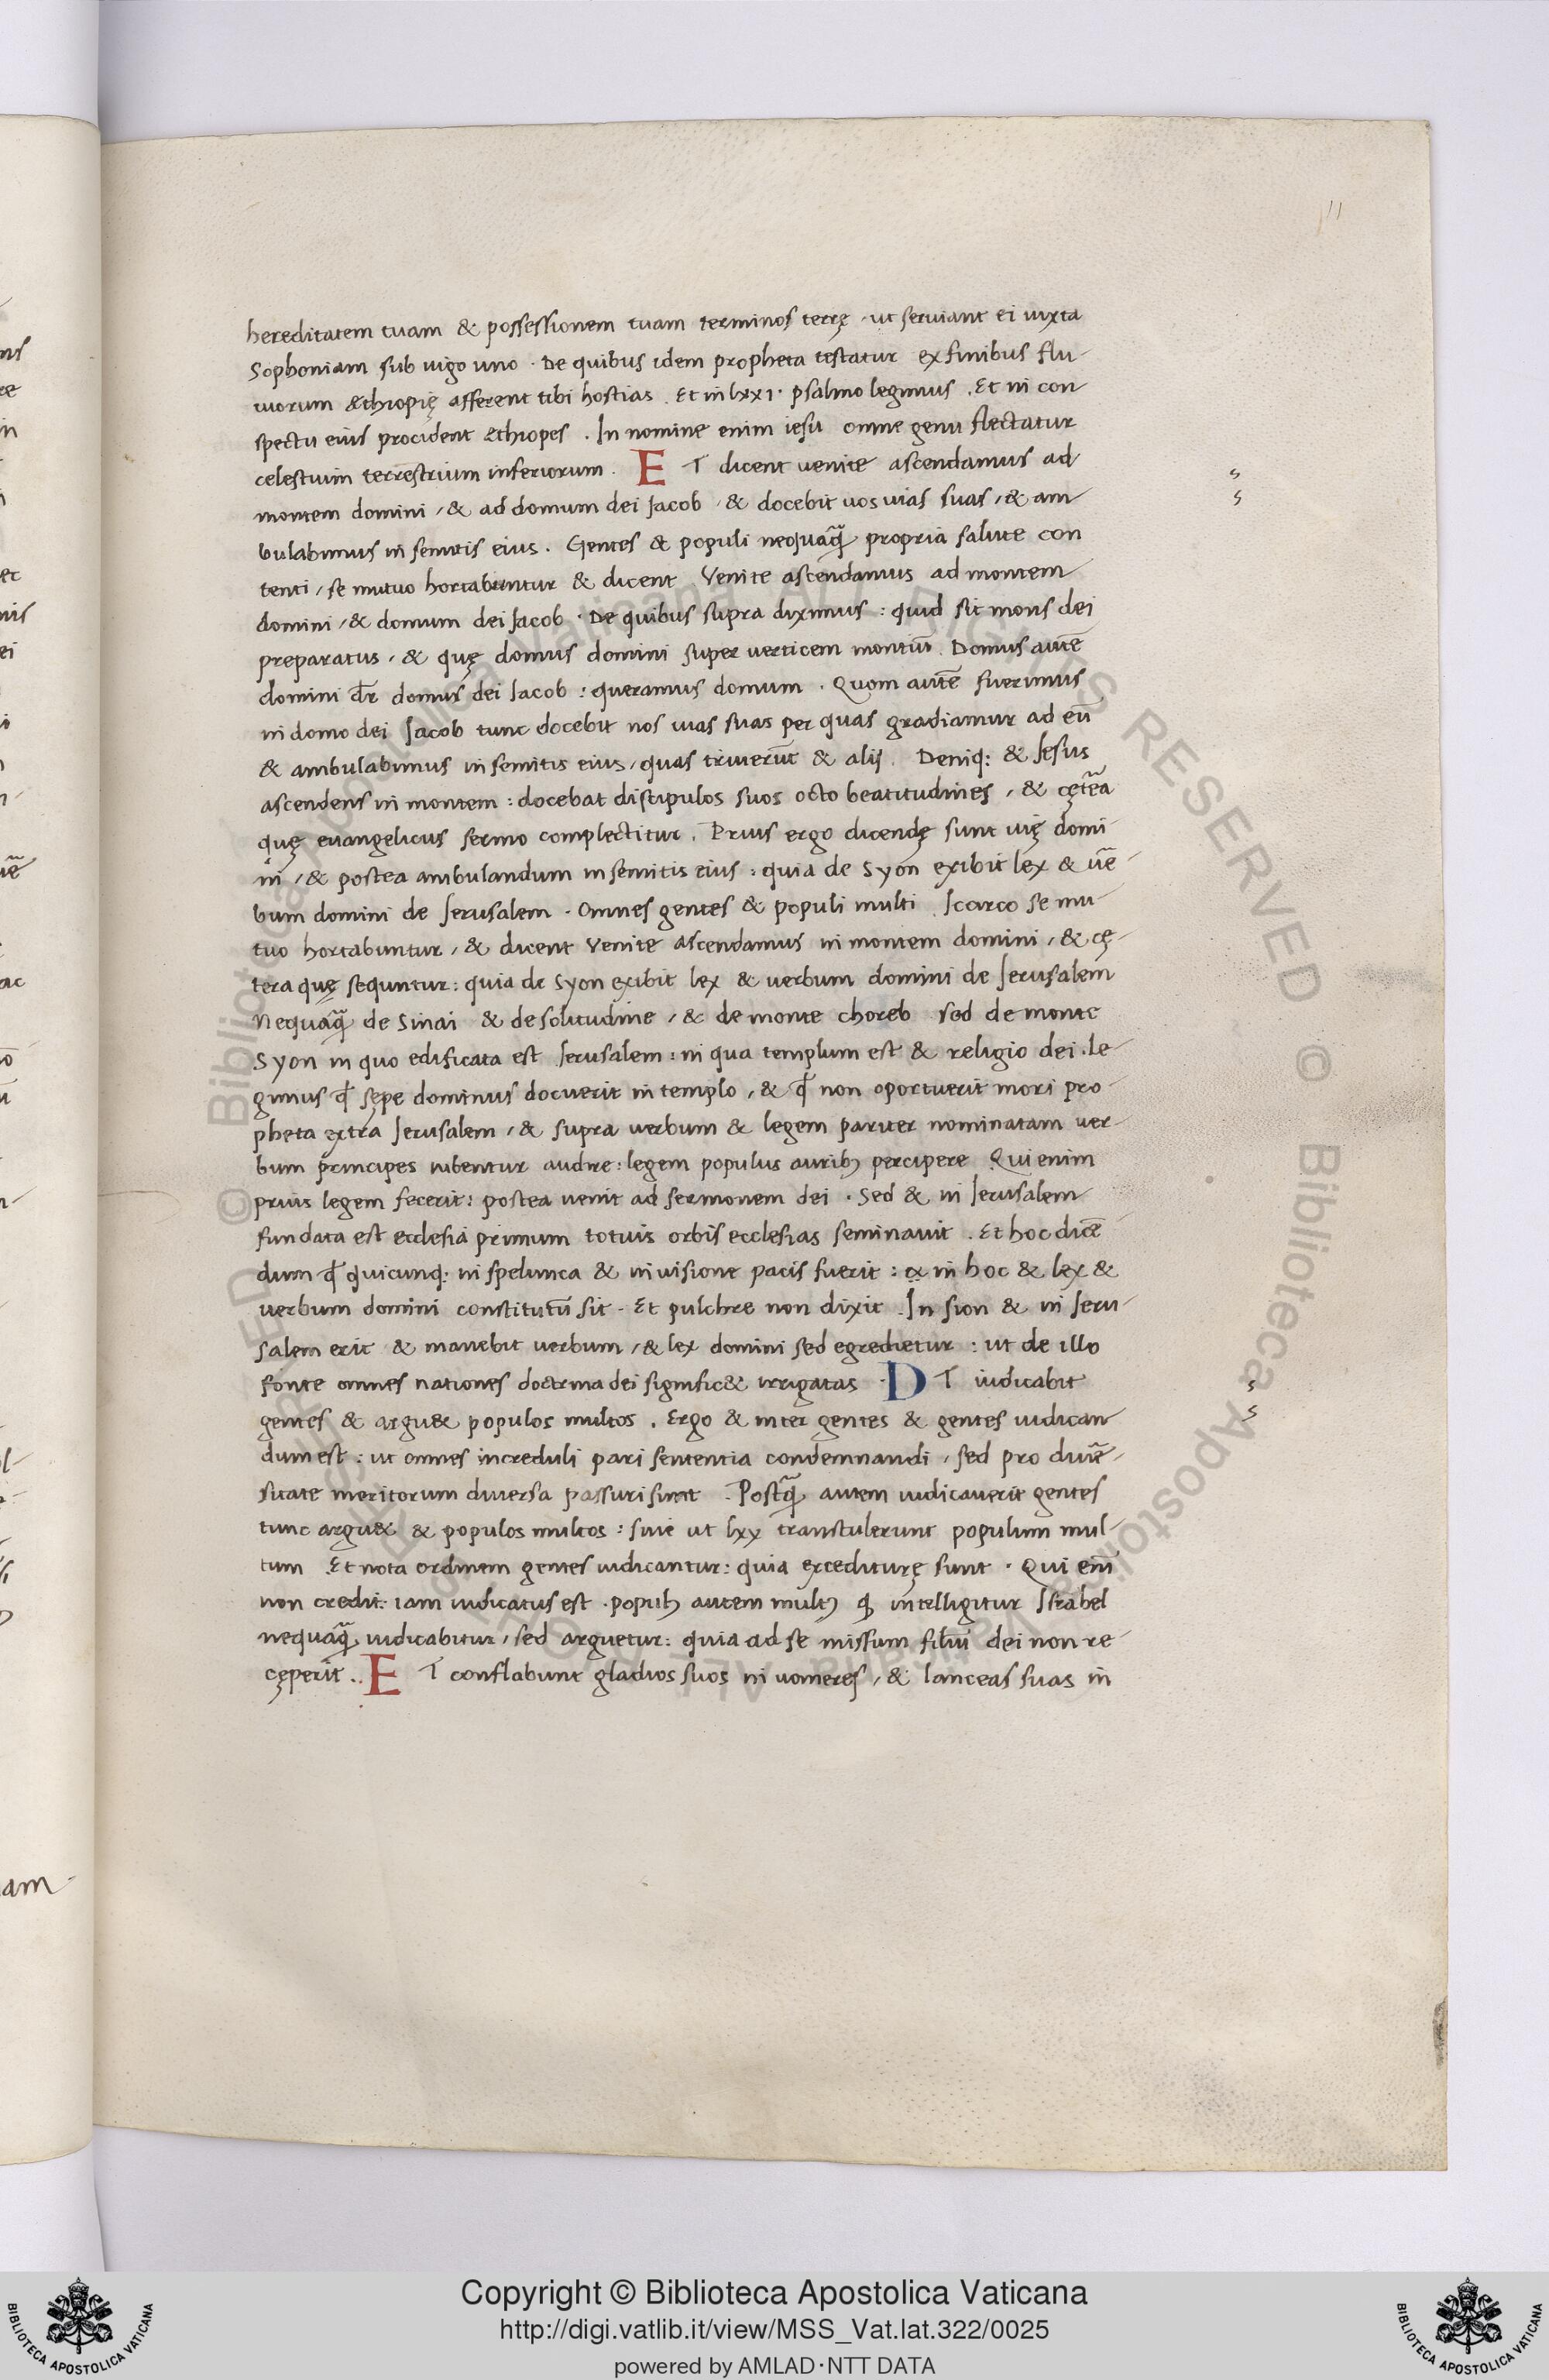 11
hereditatem tuam & possessionem tuam terminos terrę · ut seruiant ei iuxta
Sophoniam sub iugo uno · De quibus idem propheta testatur ex finibus flu-
uiorum &thiopię afferent tibi hostias . Et in lxx1 · psalmo legimus . Et in con
spectu eius procident ethiopes . In nomine enim iesu omne genu flectatur
celestium terrestrium inferiorum . E T dicent uenite ascendamus ad
montem domini , & ad domum dei Jacob · & docebit uos uias suas , & am
bulabimus in semitis eius . Gentes & populi nequaq̃ propria salute con
tenti , se mutuo hortabuntur & dicent Venite ascendamus ad montem
domini , & domum dei Jacob · De quibus supra diximus : quid sit mons dei
preparatus , & quę domus domini super uerticem montiũ . Domus autẽ
domini dr̃ domus dei Jacob : queramus domum . Quom autẽ fuerimus
in domo dei Jacob tunc docebit nos uias suas per quas gradiamur ad eũ
& ambulabimus in semitis eius , quas triuerũt & alij . Deniq: & Jesus
ascendens in montem : docebat discipulos suos octo beatitudines , & cętẽa
quę euangelicus sermo complectitur . Prius ergo dicendę sunt uię domi-
ni , & postea ambulandum in semitis eius : quia de Syon exibit lex & uẽ-
bum domini de Jerusalem . Omnes gentes & populi multi Jcarco se mu-
tuo hortabuntur , & dicent Venite ascendamus in montem domini , & cę-
tera quę sequntur : quia de Syon exibit lex & uerbum domini de Jerusalem
Nequaq̃ de Sinai & de solitudine , & de monte choreb sed de monte
Syon in quo edificata est Jerusalem : in qua templum est & religio dei . Le-
gimus ꝙ sępe dominus docuerit in templo , & ꝙ non oportuerit mori pro-
pheta extra Jerusalem , & supra uerbum & legem pariter nominatam uer-
bum principes iubentur audire : legem populus aurib; percipere Qui enim
prius legem fecerit : postea uenit ad sermonem dei . Sed & in Jerusalem
fundata est ecclesia primum totius orbis ecclesias seminauit . Et hoc dicẽ
dum ꝙ quicunq: in spelunca & in uisione pacis fuerit : in hoc & lex &
uerbum domini constitutũ sit . Et pulchre non dixit . In sion & in Jeru-
salem erit & manebit uerbum , & lex domini sed egredietur : ut de illo
fonte omnes nationes doctrina dei signific& irrigatas . D T iudicabit
gentes & argu& populos multos . Ergo & inter gentes & gentes iudican
dum est : ut omnes increduli pari sententia condemnandi , sed pro diuẽ-
sitate meritorum diuersa passuri sint . Postq̃ autem iudicauerit gentes
tunc argu& & populos multos : siue ut lxx transtulerunt populum mul-
tum Et nota ordinem gentes iudicantur : quia excediturę sunt . Qui enĩ
non credit : iam iudicatus est . popul; autem mult; q; intelligitur Israhel
nequaq̃ iudicabitur , sed arguetur : quia ad se missum filiũ dei non re-
cęperit . E T conflabunt gladios suos in uomeres , & lanceas suas in
Copyright © Biblioteca Apostolica Vaticana
http://digi.vatlib.it/view/MSS_Vat.lat.322/0025
powered by AMLAD·NTT DATA